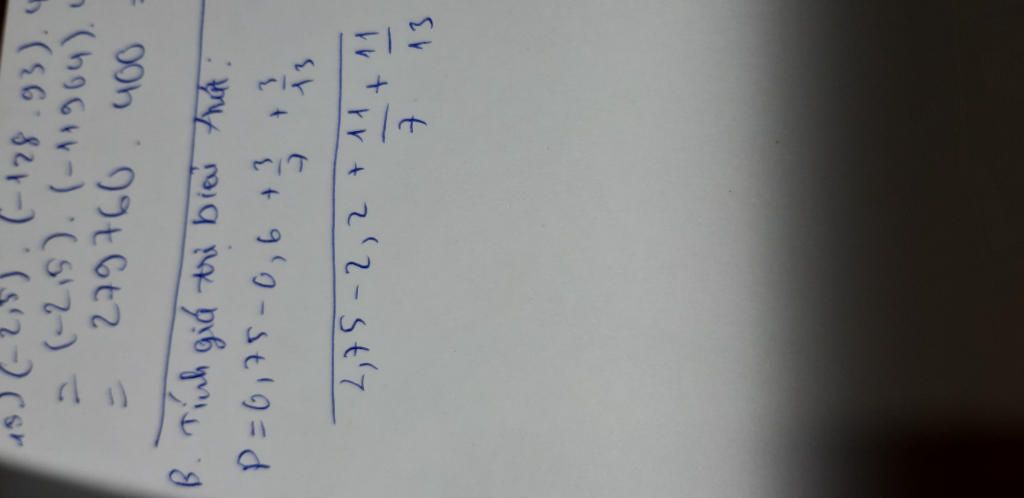 15) (-2,5) . (-128 . 93) .
= (-2,5) . (-11904) .
= 29760 . 400
B. Tính giá trị biểu thức:
P = 0,75 - 0,6 + 3/7 + 3/13
2,75 - 2,2 + 11/7 + 11/13